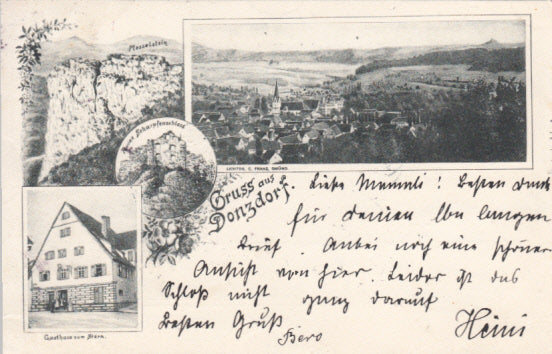 Messelstein
Scharfenschloss
LICHTDR. C. FRANZ, GMÜND.
Gruss aus
Donzdorf.
Gasthaus zum Stern.
Liebe Mammli! Besten Dank
für deinen langen
Brief. Anbei noch eine schöne
Ansicht von hier. Leider ist das
Schloß nicht ganz darauf
Besten Gruß
Heini